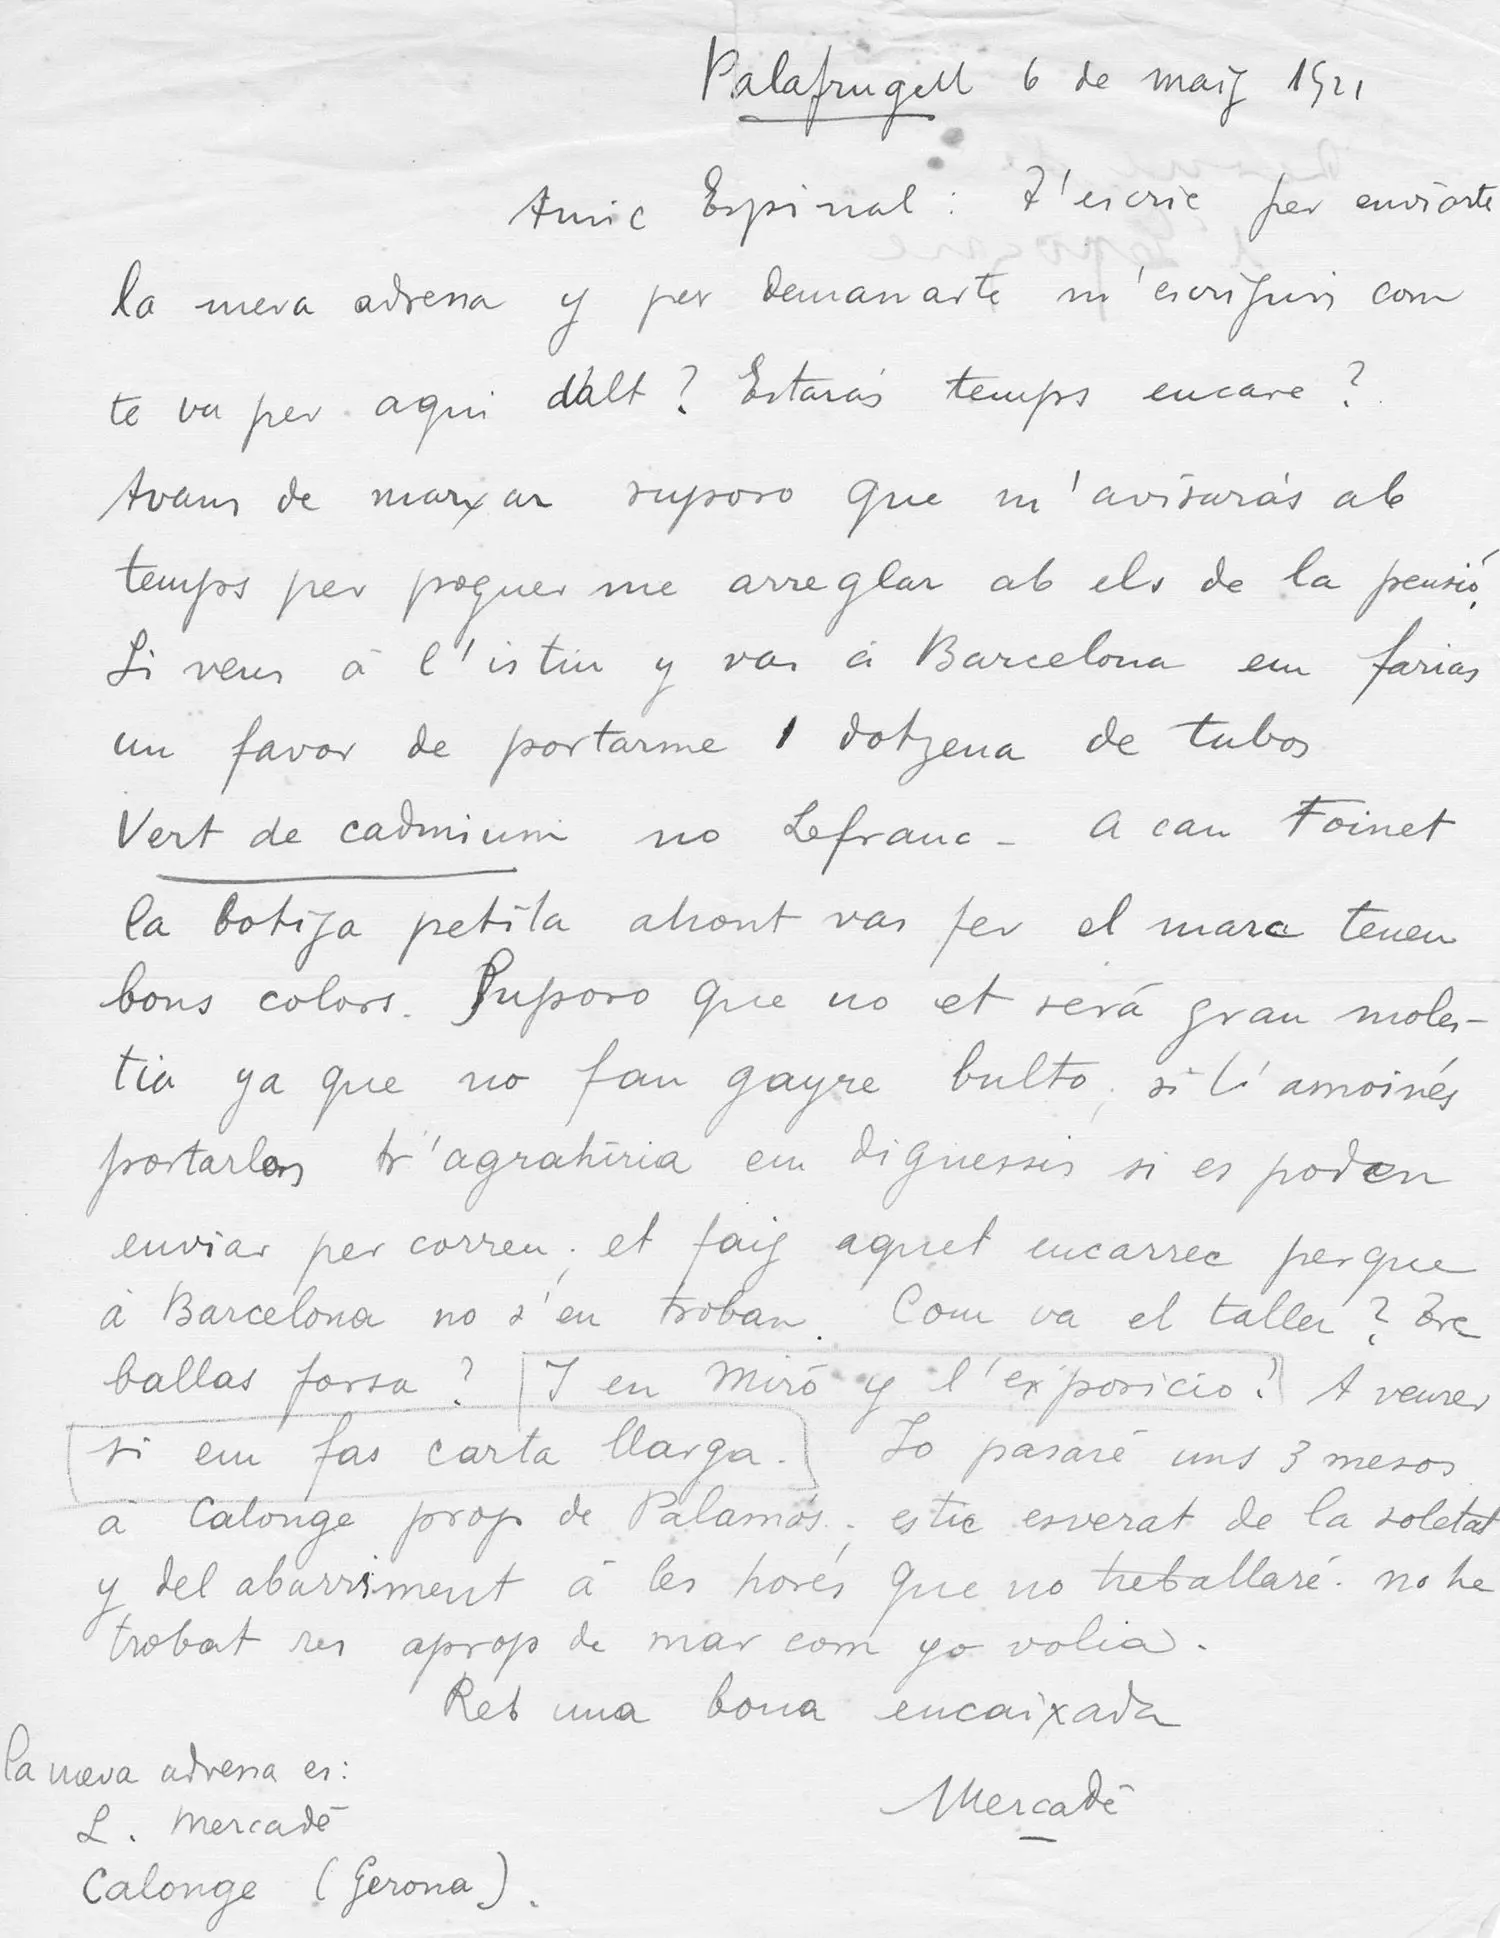 Palafrugell 6 de maig 1921
Amic Espinal : T'escric per enviarte
la meva adressa y per demanarte m'escriguis com
te va per aqui dalt ? Estarás temps encare ?
Avans de marxar suposo que m'avisarás ab
temps per poguerme arreglar ab els de la pensió.
Si vens á l'istiu y vas á Barcelona em farias
un favor de portarme 1 dotzena de tubos
Vert de cadmium no Lefranc - A can Foinet
la botiga petita ahont vas fer el marc tenen
bons colors. Suposo que no et será gran moles-
tia ya que no fan gayre bulto, si t'amoinés
portarlos t'agrahiria em diguessis si es poden
enviar per correu ; et faig aquet encarrec perque
á Barcelona no s'en troban. Com va el taller ? Tre
ballas forsa ? I en Miró y l'exposició ? A veurer
si em fas carta llarga. Jo pasaré uns 3 mesos
a Calonge prop de Palamós ; estic esverat de la soletat
y del aburriment á les horés que no treballaré. no he
trobat res aprop de mar com yo volia.
Reb una bona encaixada
Mercadé
la meva adressa es:
L. Mercadé
Calonge (Gerona).